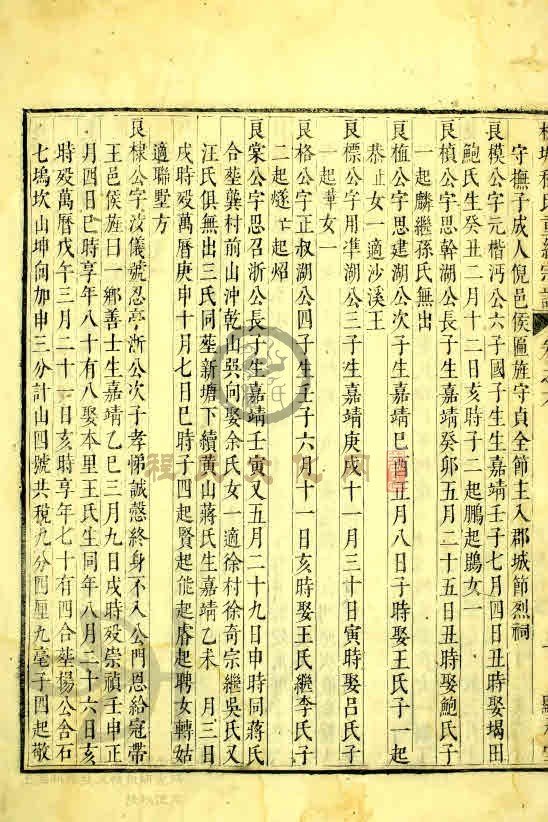 守撫子成人倪邑侯匾旌守貞全節主入郡城節烈祠
良模公字元楷沔公六子國子生生嘉靖壬子七月四日丑時娶堨田
鮑氏生癸丑二月十二日亥時子二起鵬起鵾女一
良楨公字思幹湖公長子生嘉靖癸卯五月二十五日丑時娶鮑氏子
一起麟繼孫氏無出
良植公字思建湖公次子生嘉靖己酉五月八日子時娶王氏子一起
恭止女一適沙溪王
良標公字用準湖公三子生嘉靖庚戌十一月三十日寅時娶呂氏子
一起華女一
良格公字正叔湖公四子生壬子六月十一日亥時娶王氏繼李氏子
二起燧亡起炤
良棠公字思召浙公長子生嘉靖壬寅又五月二十九日申時同蔣氏
合塟龔村前山沖乾山巽向娶余氏女一適徐村徐奇宗繼吳氏又
汪氏俱無出三氏同塟新塘下續黃山蔣氏生嘉靖乙未 月三日
戌時歿萬曆庚申十月七日巳時子四起賢起能起睿起聘女轉姑
適聯墅方
良棣公字汝儀號忍亭浙公次子孝悌誠慤終身不入公門恩給冠帶
王邑侯旌曰一鄉善士生嘉靖乙巳三月九日戌時歿崇禎壬申正
月四日巳時享年八十有八娶本里王氏生同年八月二十六日亥
時歿萬曆戊午三月二十一日亥時享年七十有四合塟楊公舍石
七塢坎山坤向加申三分計山四號共稅九分四厘九毫子四起敬